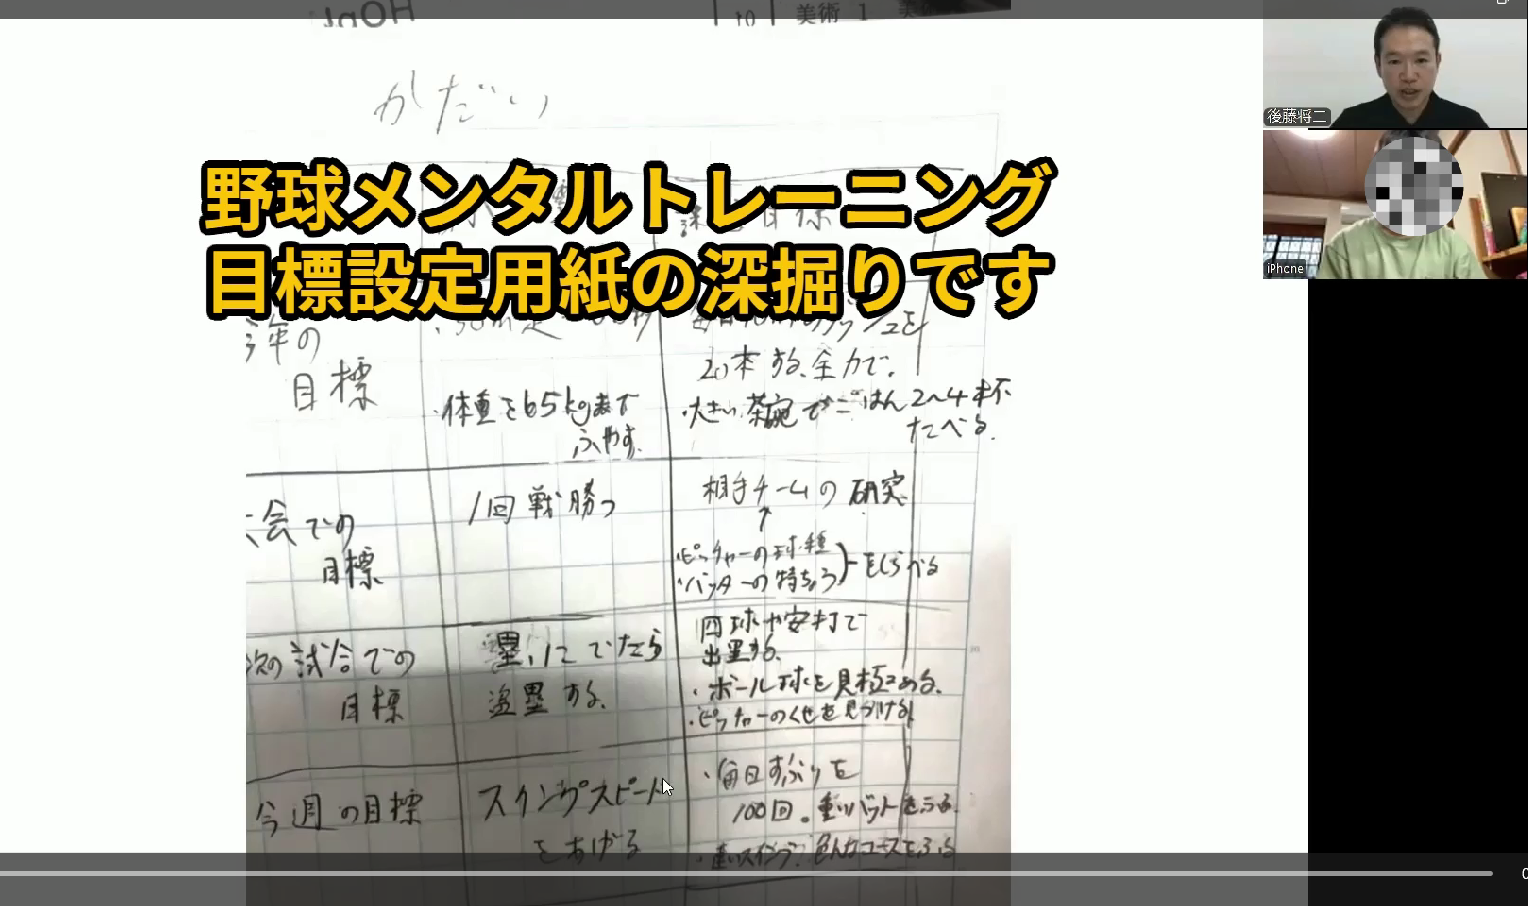 10 美術 1
かだい
野球メンタルトレーニング
目標設定用紙の深掘りです
目標
今年の
目標
・体重を65kgまで
ふやす。
20本する、全力で。
・大きい茶碗でごはん2〜4杯
たべる。
会での
目標
1回戦勝つ
相手チームの研究
↑
・ピッチャーの球種
・バッターの特ちょう
をしらべる
次の試合での
目標
塁にでたら
盗塁する。
四球や安打で
出塁する。
・ボール球を見極める。
・ピッチャーのくせを見つける
今週の目標
スイングスピード
をあげる
・毎日すぶりを
100回。重いバットをふる。
色んなコースをふる
後藤将二
iPhone